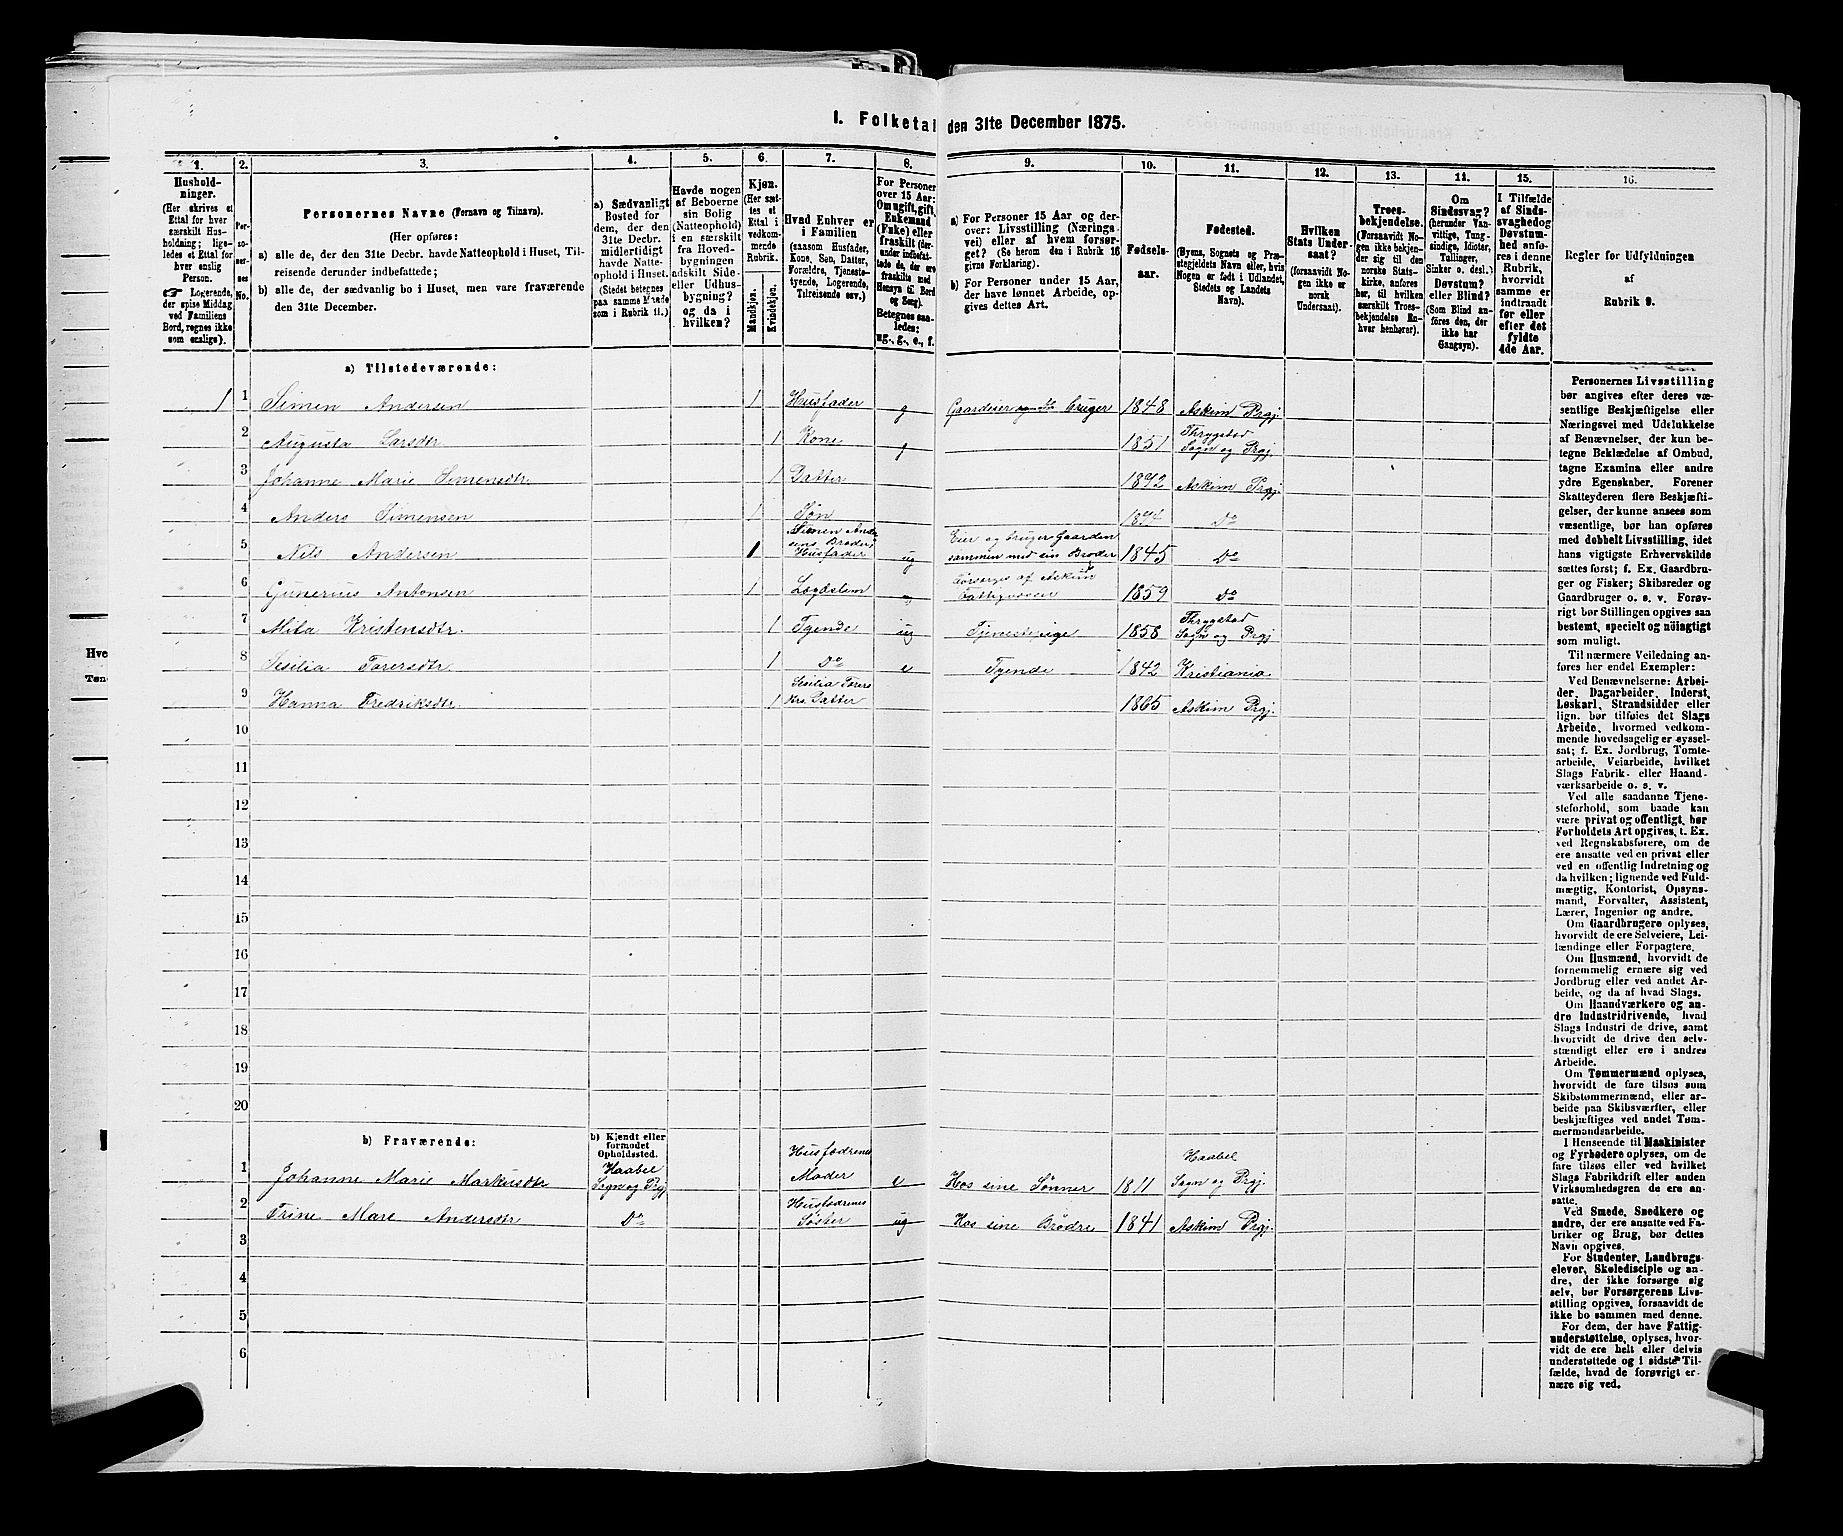 I. Folketal den 31te December 1875.
1. 2. 3. 4. 5. 6. 7. 8. 9. 10. 11. 12. 13. 14. 15. 16.
Hushold-
ninger.
(Her skrives et
Ettal for hver
særskilt Hus-
holdning; lige-
ledes et Ettal for
hver enslig
Person.
☛ Logerende,
der spise Middag
ved Familiens
Bord, regnes ikke
som enslige).
Per-
so-
ner-
nes
No.
Personernes Navne (Fornavn og Tilnavn).
(Her opføres:
a) alle de, der den 31te Decbr. havde Natteophold i Huset, Til-
reisende derunder indbefattede;
b) alle de, der sædvanlig bo i Huset, men vare fraværende
den 31te December.
a) Sædvanligt
Bosted for
dem, der den
31te Decbr.
midlertidigt
havde Natte-
ophold i Huset.
(Stedet betegnes
paa samme Maade
som i Rubrik 11.)
Havde nogen
af Beboerne
sin Bolig
(Natteophold)
i en særskilt
fra Hoved-
bygningen
adskilt Side-
eller Udhus-
bygning?
og da i
hvilken?
Kjøn.
(Her sæt-
tes et
Ettal i
vedkom-
mende
Rubrik.
Mandkjøn.
Kvindekjøn.
Hvad Enhver er
i Familien
(saasom Husfader,
Kone, Søn, Datter,
Forældre, Tjeneste-
tyende, Logerende,
Tilreisende osv.)
For Personer
over 15 Aar:
Om ugift, gift,
Enkemand
(Enke) eller
fraskilt (der-
under indbefat-
tede de, der ere
fraskilte med
Hensyn til Bord
og Seng).
Betegnes saa-
ledes:
ug., g., e., f.
a) For Personer 15 Aar og der-
over: Livsstilling (Nærings-
vei) eller af hvem forsør-
get? (Se herom den i Rubrik 16
givne Forklaring).
b) For Personer under 15 Aar,
der have lønnet Arbeide, op-
gives dettes Art.
Fødsels-
aar.
Fødested.
(Byens, Sognets og Præ-
stegjeldets Navn eller, hvis
Nogen er født i Udlandet,
Stedets og Landets
Navn).
Hvilken
Stats Under-
saat?
(forsaavidt No-
gen ikke er
norsk
Undersaat).
Troes-
bekjendelse.
(Forsaavidt No-
gen ikke bekjen-
der sig til den
norske Stats-
kirke, anføres
her, til hvilken
særskilt Troes-
bekjendelse En-
hver henhører).
Om
Sindssvag?
(herunder Van-
vittige, Tung-
sindige, Idioter,
Tullinger,
Sinker o. desl.)
Døvstum?
eller Blind?
(Som Blind an-
føres den, der
ikke har
Gangsyn).
I Tilfælde
af Sinds-
svaghed og
Døvstum-
hed anfø-
res i denne
Rubrik,
hvorvidt
samme er
indtraadt
før eller
efter det
fyldte
4de Aar.
Regler for Udfyldningen
af
Rubrik 9.
a) Tilstedeværende:
1 1 Simen Andersen 1 Husfader g Gaardeier og bruger 1848 Askim Prgj.
2 Augusta Larsdtr 1 Kone g 1851 Thrygstad Sogn og Prgj.
3 Johanne Marie Simensdtr. 1 Datter 1872 Askim Prgj.
4 Anders Simensen 1 Søn 1874 Do
5 Nils Andersen 1 Simen Andersens Broder Husfader ug Eier og bruger Gaarden sammen med sin Broder 1845 Do
6 Gunerius Antonsen 1 Lægdslem Forsørges af Askim Fattigvæsen 1859 Do
7 Mita Kristensdtr. 1 Tyende ug Tjenestepige 1858 Thrygstad Sogn og Prgj
8 Sesilia Torersdtr. 1 Do e Tyende 1842 Kristiania
9 Hanna Fredriksdtr. 1 Sesilia Torers Datter 1865 Askim Prgj.
10
11
12
13
14
15
16
17
18
19
20
b) Fraværende:
b) Kjendt eller
formodet
Opholdssted.
1 Johanne Marie Markusdtr Haabel Sogn og Prgj Husfædrenes Moder e Hos sine Sønner 1811 Haabel Sogn og Prgj.
2 Trine Mare Andersdtr Do Husfædrenes Søster ug Hos sine Brødre 1841 Askim Prgj.
3
4
5
6
Personernes Livsstilling
bør angives efter deres væ-
sentlige Beskjæftigelse eller
Næringsvei med Udelukkelse
af Benævnelser, der kun be-
tegne Beklædelse af Ombud,
tagne Examina eller andre
ydre Egenskaber. Forener
Skatteyderen flere Beskjæfti-
gelser, der kunne ansees som
væsentlige, bør han opføres
med dobbelt Livsstilling, idet
hans vigtigste Erhvervskilde
sættes først; f. Ex. Gaardbru-
ger og Fisker; Skibsreder og
Gaardbruger o. s. v. Forøv-
rigt bør Stillingen opgives saa
bestemt, specielt og nøiagtigt
som muligt.
Til nærmere Veiledning an-
føres her endel Exempler:
Ved Benævnelserne: Arbei-
der, Dagarbeider, Inderst,
Løskarl, Strandsidder eller
lign. bør tilføies det Slags
Arbeide, hvormed vedkom-
mende hovedsagelig er syssel-
sat; f. Ex. Jordbrug, Tomte-
arbeide, Veiarbeide, hvilket
Slags Fabrik- eller Haand-
værksarbeide o. s. v.
Ved alle saadanne Tjene-
steforhold, som baade kan
være privat og offentligt, bør
Forholdets Art opgives, t. Ex.
ved Regnskabsførere, om de
ere ansatte ved en privat eller
ved en offentlig Indretning og
da hvilken; lignende ved Fuld-
mægtig, Kontorist, Opsyns-
mand, Forvalter, Assistent,
Lærer, Ingeniør og andre.
Om Gaardbrugere oplyses,
hvorvidt de ere Selveiere, Lei-
lændinge eller Forpagtere.
Om Husmænd, hvorvidt de
fornemmelig ernære sig ved
Jordbrug eller ved andet Ar-
beide, og da af hvad Slags.
Om Haandværkere og an-
dre Industridrivende, hvad
Slags Industri de drive, samt
hvorvidt de drive den selv-
stændigt eller ere i andres
Arbeide.
Om Tømmermænd oplyses,
hvorvidt de fare tilsøs som
Skibstømmermænd, eller ar-
beide paa Skibsværfter, eller
beskjæftiges ved andet Tøm-
mermandsarbeide.
I Henseende til Maskinister
og Fyrbødere oplyses, om de
fare tilsøs eller ved hvilket
Slags Fabrikdrift eller anden
Virksomhedsgren de ere an-
satte.
Ved Smede, Snedkere og
andre, der ere ansatte ved Fa-
briker og Brug, bør dettes
Navn opgives.
For Studenter, Landbrugs-
elever, Skoledisciple og an-
dre, der ikke forsørge sig
selv, bør Forsørgerens Livs-
stilling opgives, forsaavidt de
ikke bo sammen med denne.
For dem, der have Fattig-
understøttelse, oplyses, hvor-
vidt de ere helt eller delvis
understøttede og i sidste Til-
fælde, hvad de forøvrigt er-
nære sig ved.